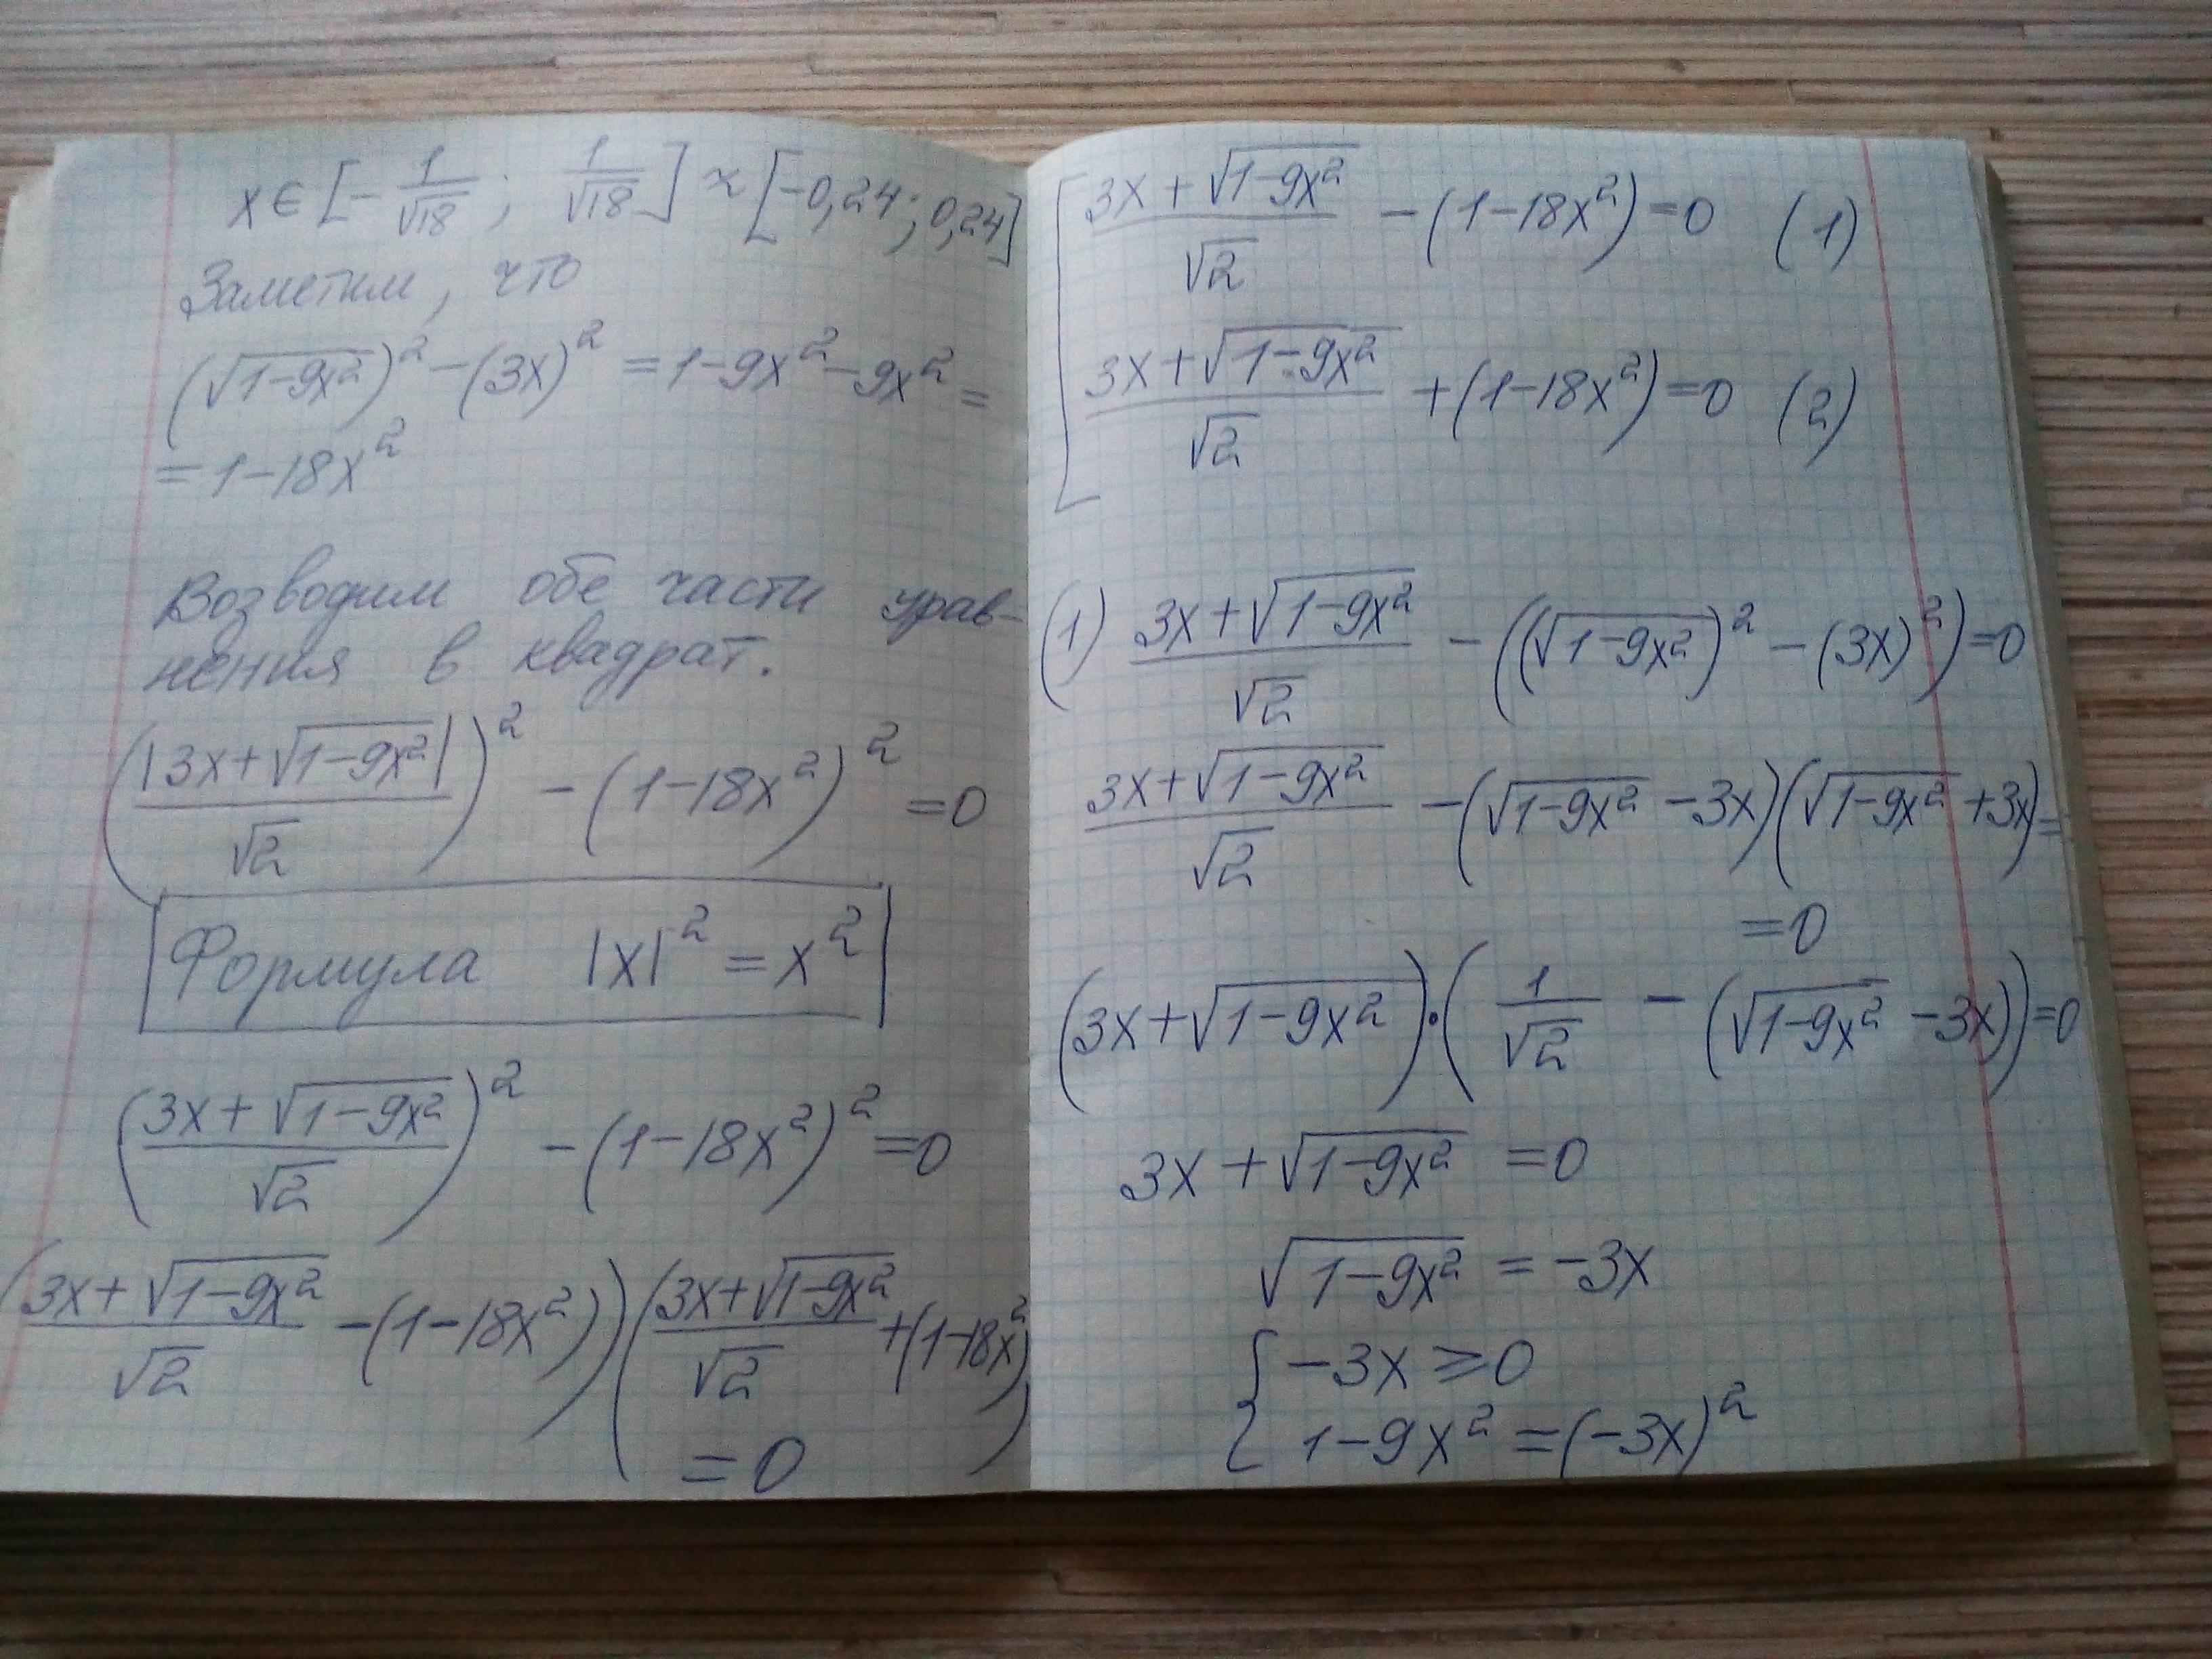 x ∈ [-1/√18 ; 1/√18] ≈ [-0,24; 0,24]
Заметим, что
(√(1-9x²))² - (3x)² = 1-9x²-9x² =
= 1-18x²
Возводим обе части урав-
нения в квадрат.
(|3x+√(1-9x²)|/√2)² - (1-18x²)² = 0
Формула |x|² = x²
((3x+√(1-9x²))/√2)² - (1-18x²)² = 0
((3x+√(1-9x²))/√2 - (1-18x²))((3x+√(1-9x²))/√2 + (1-18x²))
= 0
[ (3x+√(1-9x²))/√2 - (1-18x²) = 0 (1)
(3x+√(1-9x²))/√2 + (1-18x²) = 0 (2)
(1) (3x+√(1-9x²))/√2 - ((√(1-9x²))² - (3x)²) = 0
(3x+√(1-9x²))/√2 - (√(1-9x²) - 3x)(√(1-9x²) + 3x) =
= 0
(3x+√(1-9x²))·(1/√2 - (√(1-9x²) - 3x)) = 0
3x + √(1-9x²) = 0
√(1-9x²) = -3x
{ -3x ⩾ 0
1-9x² = (-3x)²